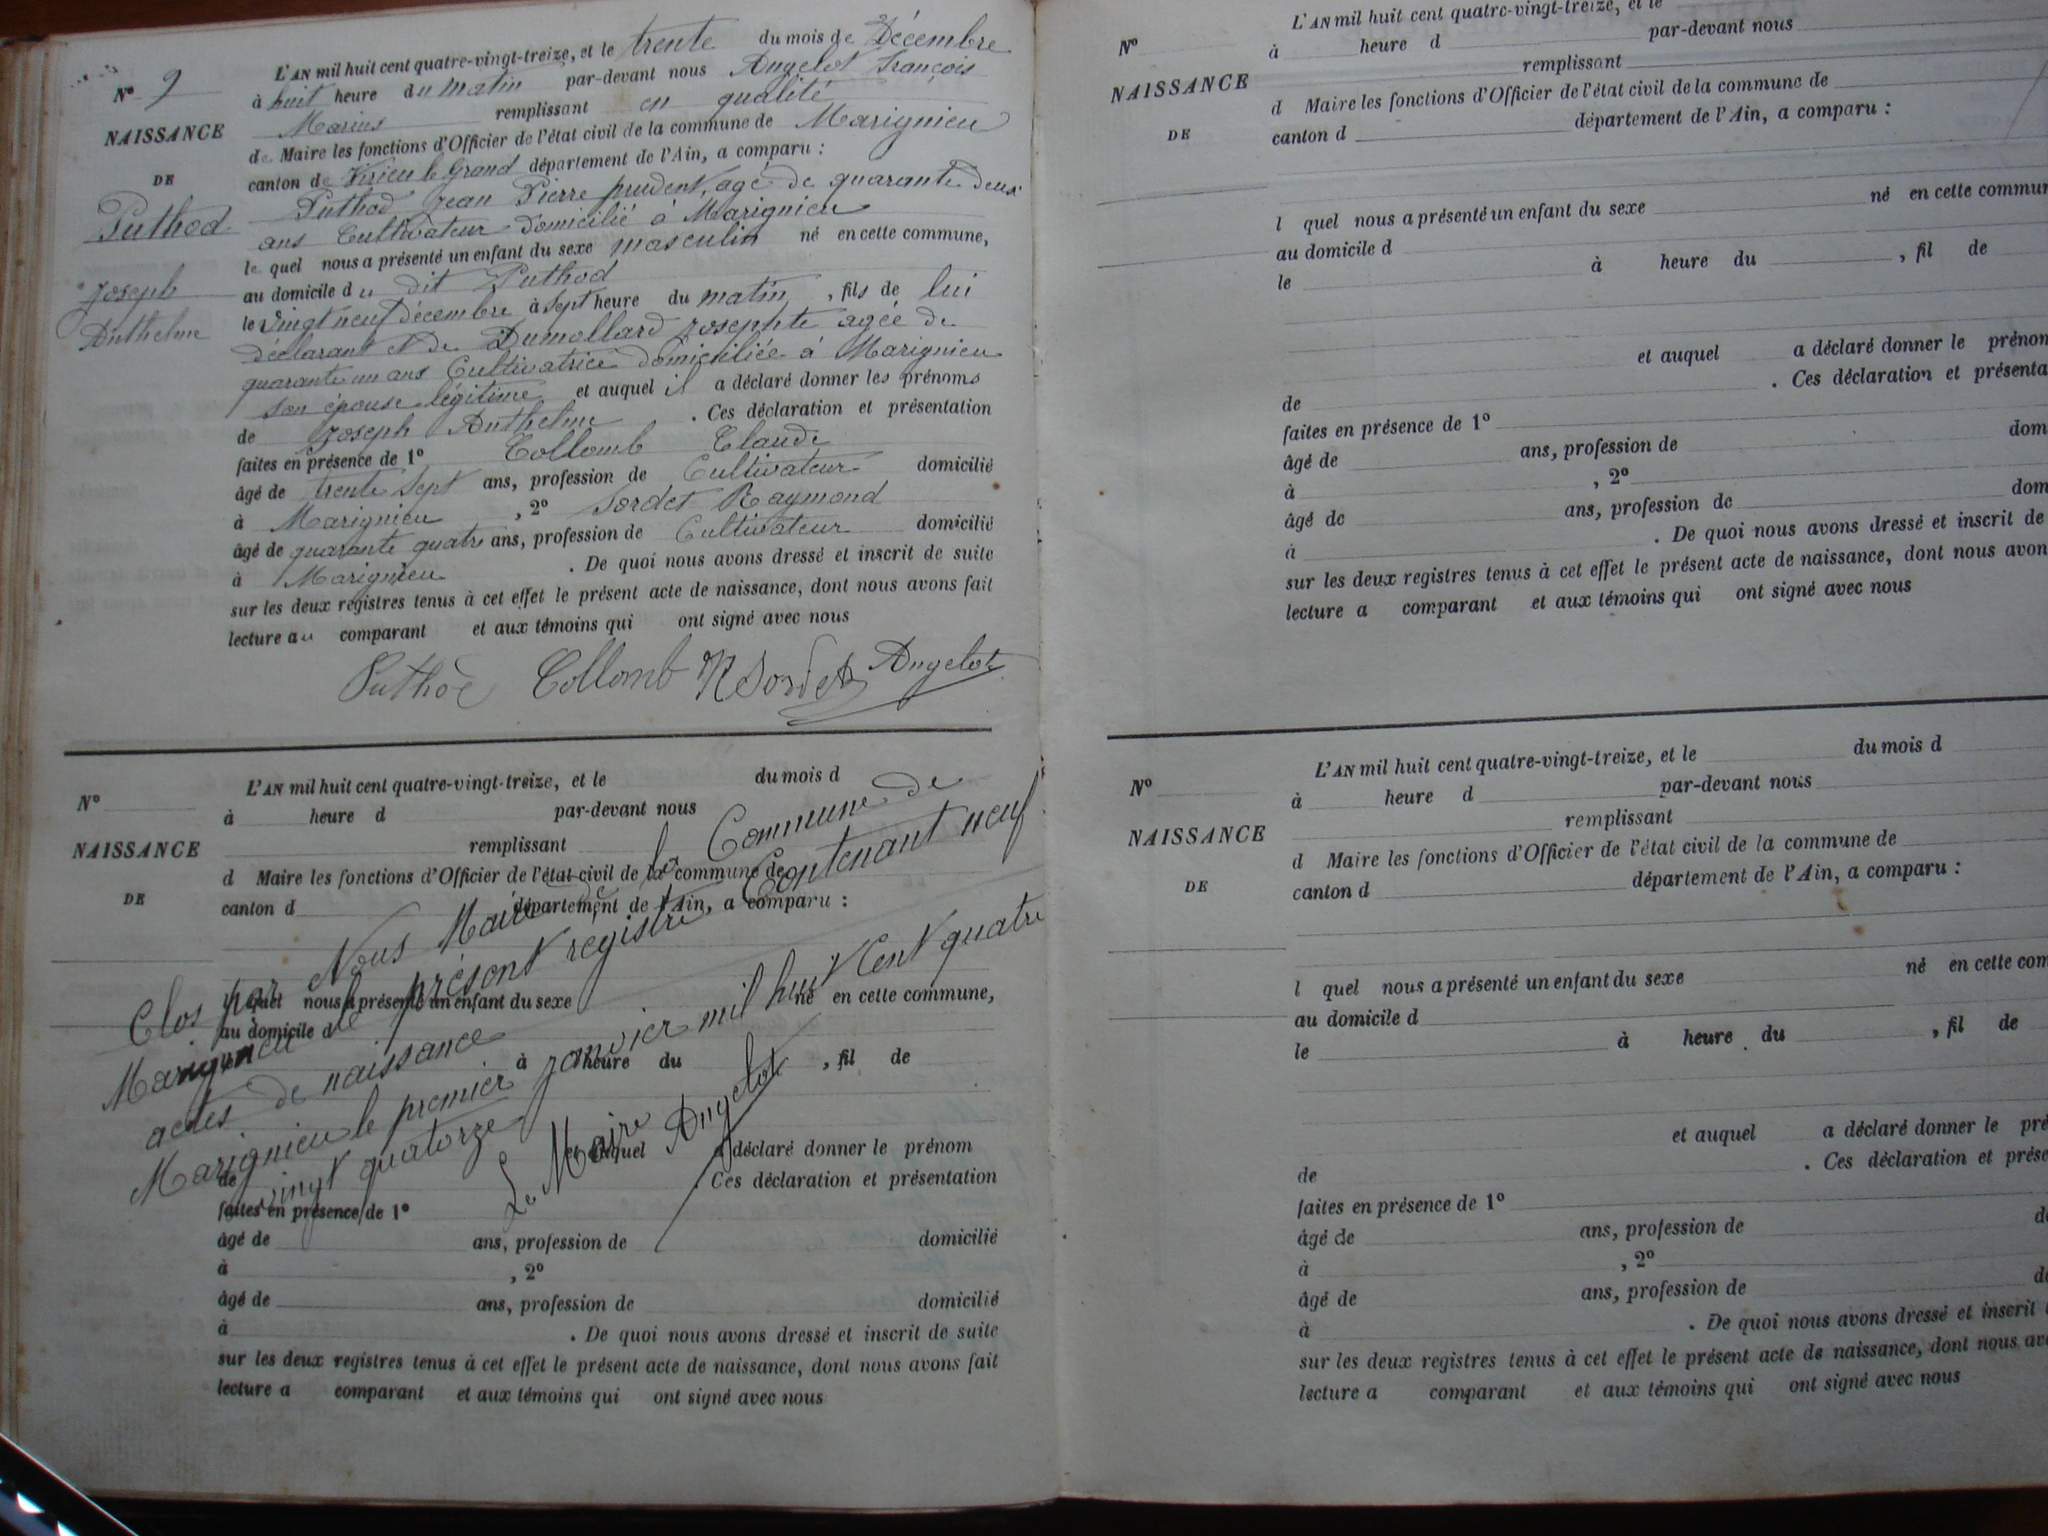 L'AN mil huit cent quatre-vingt-treize, et le trente du mois de Décembre
à huit heure du matin par-devant nous Angelot François
Marius remplissant en qualité
de Maire les fonctions d'Officier de l'état civil de la commune de Marignieu
canton de Virieu le Grand département de l'Ain, a comparu :
Puthod Jean Pierre prudent, agé de quarante deux
ans Cultivateur domicilié à Marignieu
le quel nous a présenté un enfant du sexe masculin né en cette commune,
au domicile du dit Puthod
le vingt neuf décembre à sept heure du matin, fils de lui
déclarant et de Dumollard Josephte agée de
quarante un ans Cultivatrice domiciliée à Marignieu
son épouse légitime et auquel il a déclaré donner les prénoms
de Joseph Anthelme . Ces déclaration et présentation
faites en présence de 1º Collomb Claude
âgé de trente sept ans, profession de Cultivateur domicilié
à Marignieu , 2º Sordet Raymond
âgé de quarante quatre ans, profession de Cultivateur domicilié
à Marignieu . De quoi nous avons dressé et inscrit de suite
sur les deux registres tenus à cet effet le présent acte de naissance, dont nous avons fait
lecture au comparant et aux témoins qui ont signé avec nous
Puthod Collomb R Sordet Angelot
Nº 9
NAISSANCE
DE
Puthod
Joseph
Anthelme
Nº
NAISSANCE
DE
L'AN mil huit cent quatre-vingt-treize, et le du mois d
à heure d par-devant nous
remplissant
d Maire les fonctions d'Officier de l'état civil de la commune de
canton d département de l'Ain, a comparu :
l quel nous a présenté un enfant du sexe né en cette commune,
au domicile d
le à heure du , fil de
et auquel a déclaré donner le prénom
de . Ces déclaration et présentation
faites en présence de 1º
âgé de ans, profession de domicilié
à , 2º
âgé de ans, profession de domicilié
à . De quoi nous avons dressé et inscrit de suite
sur les deux registres tenus à cet effet le présent acte de naissance, dont nous avons fait
lecture a comparant et aux témoins qui ont signé avec nous
Clos par Nous Maire de la Commune de
Marignieu le présent registre Contenant neuf
actes de naissance
Marignieu le premier janvier mil huit Cent quatre
vingt quatorze
Le Maire Angelot
Nº
NAISSANCE
DE
L'AN mil huit cent quatre-vingt-treize, et le
à heure d par-devant nous
remplissant
d Maire les fonctions d'Officier de l'état civil de la commune de
canton d département de l'Ain, a comparu :
l quel nous a présenté un enfant du sexe né en cette commun
au domicile d
le à heure du , fil de
et auquel a déclaré donner le prénom
de . Ces déclaration et présenta
faites en présence de 1º
âgé de ans, profession de dom
à , 2º
âgé de ans, profession de dom
à . De quoi nous avons dressé et inscrit de
sur les deux registres tenus à cet effet le présent acte de naissance, dont nous avon
lecture a comparant et aux témoins qui ont signé avec nous
Nº
NAISSANCE
DE
L'AN mil huit cent quatre-vingt-treize, et le du mois d
à heure d par-devant nous
remplissant
d Maire les fonctions d'Officier de l'état civil de la commune de
canton d département de l'Ain, a comparu :
l quel nous a présenté un enfant du sexe né en cette com
au domicile d
le à heure du , fil de
et auquel a déclaré donner le pré
de . Ces déclaration et prése
faites en présence de 1º
âgé de ans, profession de do
à , 2º
âgé de ans, profession de do
à . De quoi nous avons dressé et inscrit
sur les deux registres tenus à cet effet le présent acte de naissance, dont nous av
lecture a comparant et aux témoins qui ont signé avec nous